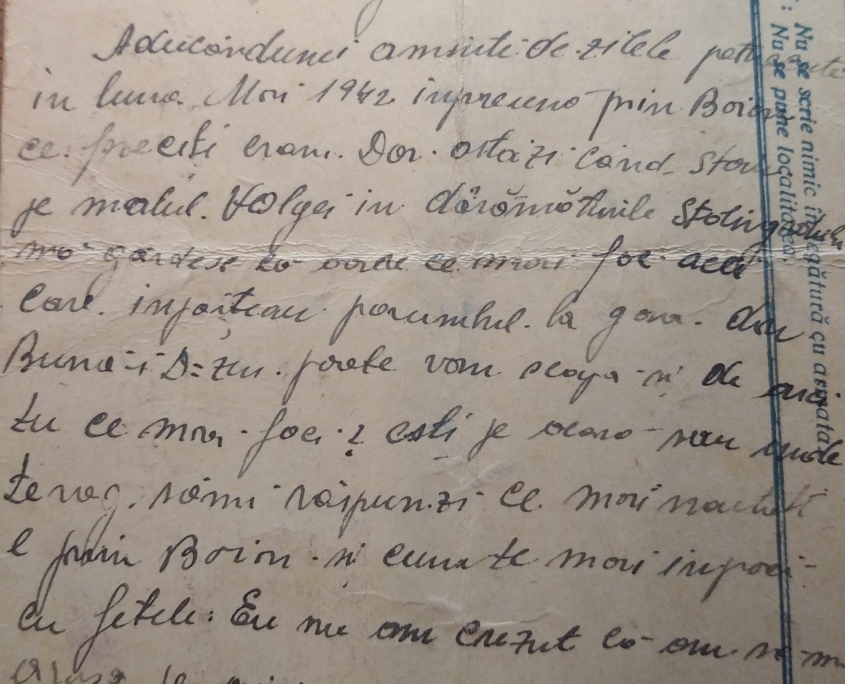 Aducândumi aminte de zilele petrecute
in luna Mai 1942 inpreună prin Boian
ce fericiți eram. Dar astăzi când stau
pe malul Volgei in dărămăturile Stalingradului
mă gândesc că oare ce mai fac acei
care inpărțeau porumbul la gară. dar
Bună-i D-zeu poate vom scapa și de aici
tu ce mai faci? ești pe acasă sau unde
te rog sămi răspunzi ce mai
e prin Boian și cum te mai
cu fetele: Eu nu am crezut că am să
Nu se scrie nimic în legătură cu armata.
Nu se pune localitatea